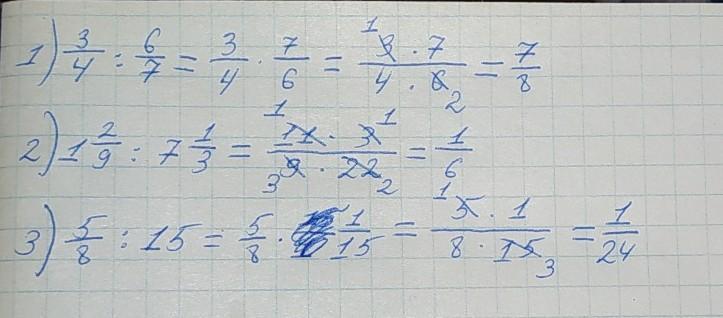 1) 3/4 : 6/7 = 3/4 · 7/6 = 3 · 7 / 4 · 6 = 7/8
2) 1 2/9 : 7 1/3 = 11 · 3 / 9 · 22 = 1/6
3) 5/8 : 15 = 5/8 · 1/15 = 5 · 1 / 8 · 15 = 1/24